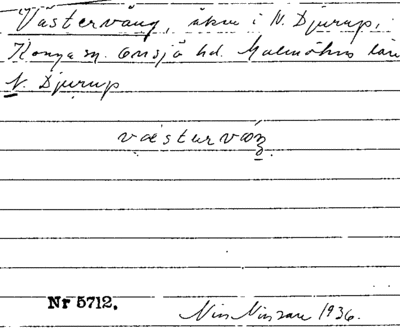 Västerväng, åker i N. Djurup,
Konga sn. Onsjö hd. Malmöhus län
N. Djurup
västervæŋ
Nr 5712.
1936.